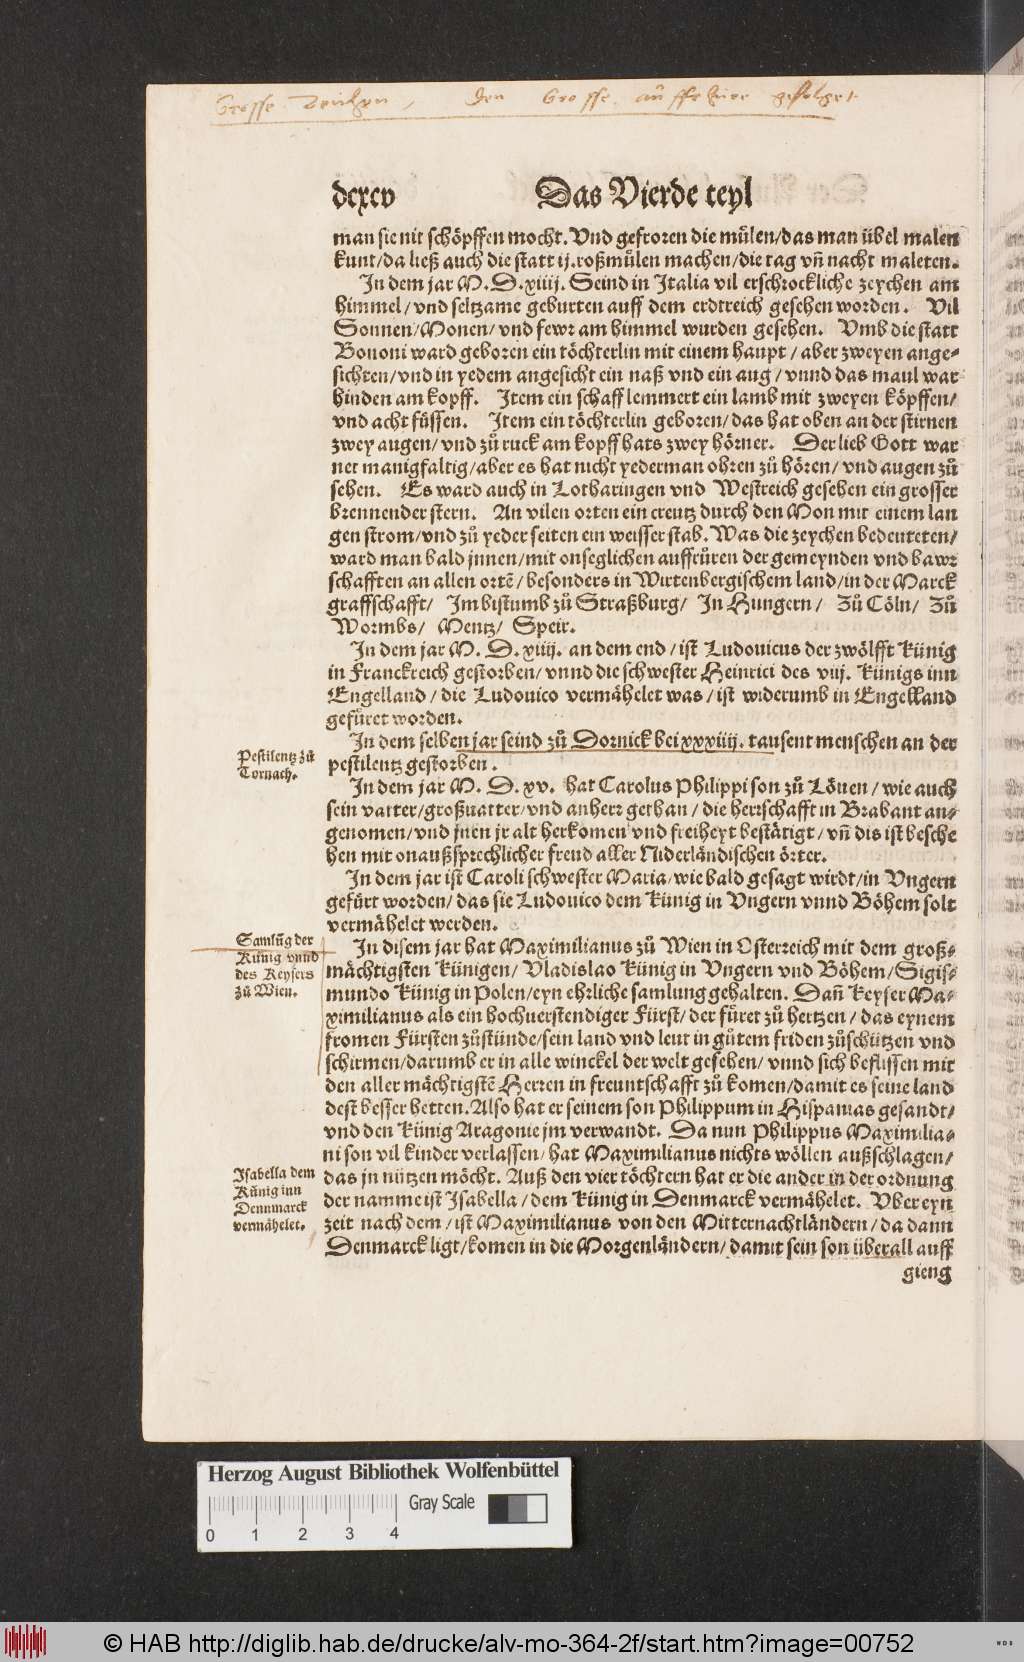 Grosse den Grosse auffrhure gefolget.
dcxcv Das Vierde teyl
man sie nit schöpffen mocht. Vnd gefroren die mülen/das man übel malen
kunt/da ließ auch die statt ij.roßmülen machen/die tag vñ nacht maleten.
In dem jar M. D.xiiij. Seind in Italia vil erschrockliche zeychen am
himmel/vnd seltzame geburten auff dem erdtreich gesehen worden. Vil
Sonnen/Monen/vnd fewr am himmel wurden gesehen. Vmb die statt
Bononi ward geboren ein töchterlin mit einem haupt/aber zweyen ange-
sichten/vnd in yedem angesicht ein naß vnd ein aug/vnnd das maul war
hinden am kopff. Item ein schaff lemmert ein lamb mit zweyen köpffen/
vnd acht füssen. Item ein töchterlin geboren/das hat oben an der stirnen
zwey augen/vnd zů ruck am kopff hats zwey hörner. Der lieb Gott war
net manigfaltig/aber es hat nicht yederman ohren zů hören/vnd augen zů
sehen. Es ward auch in Lotharingen vnd Westreich gesehen ein grosser
brennender stern. An vilen orten ein creutz durch den Mon mit einem lan
gen strom/vnd zů yeder seiten ein weisser stab. Was die zeychen bedeuteten/
ward man bald jnnen/mit onseglichen auffrůren der gemeynden vnd bawr
schafften an allen ortē/besonders in Wirtenbergischem land/in der Marck
graffschafft/ Im bistumb zů Straßburg/ In Hungern/ Zů Cöln/ Zů
Wormbs/ Mentz/ Speir.
In dem jar M. D. xiiij. an dem end/ist Ludouicus der zwölfft Künig
in Franckreich gestorben/vnnd die schwester Heinrici des viij. Künigs inn
Engelland/die Ludouico vermähelet was/ist widerumb in Engelland
gefůret worden.
In dem selben jar seind zů Dornick bei xxxiiij. tausent menschen an der
pestilentz gestorben.
Pestilentz zů
Tornach.
In dem jar M. D. xv. hat Carolus Philippi son zů Löuen/wie auch
sein vatter/großuatter/vnd anherr gethan/die herrschafft in Brabant an-
genomen/vnd jnen jr alt herkomen vnd freiheyt bestätigt/vñ dis ist besche
hen mit onaußsprechlicher frend aller Niderländischen örter.
In dem jar ist Caroli schwester Maria/wie bald gesagt wirdt/in Vngern
gefürt worden/das sie Ludouico dem Künig in Vngern vnnd Böhem solt
vermähelet werden.
Samlũg der
Künig vnnd
des Keysers
zů Wien.
In disem jar hat Maximilianus zů Wien in Osterreich mit dem groß-
mächtigsten Künigen/Vladislao Künig in Vngern vnd Böhem/Sigis-
mundo Künig in Polen/eyn ehrliche samlung gehalten. Dañ Keyser Ma-
ximilianus als ein hochuerstendiger Fürst/der fůret zů hertzen/das eynem
fromen Fürsten zůstünde/sein land vnd leut in gůtem friden zůschützen vnd
schirmen/darumb er in alle winckel der welt gesehen/vnnd sich beflissen mit
den aller mächtigstē Herren in freuntschafft zů komen/damit es seine land
dest besser hetten. Also hat er seinem son Philippum in Hispanias gesandt/
vnd den Künig Aragonie jm verwandt. Da nun Philippus Maximilia-
ni son vil kinder verlassen/hat Maximilianus nichts wöllen außschlagen/
das jn nützen möcht. Auß den vier töchtern hat er die ander in der ordnung
der namme ist Isabella/dem Künig in Denmarck vermähelet. Vber eyn
zeit nach dem/ist Maximilianus von den Mitternachtländern/da dann
Denmarck ligt/komen in die Morgenländern/damit sein son überall auff
gieng
Isabella dem
Künig inn
Dennmarck
vermähelet.
Herzog August Bibliothek Wolfenbüttel
Gray Scale
0 1 2 3 4
© HAB http://diglib.hab.de/drucke/alv-mo-364-2f/start.htm?image=00752